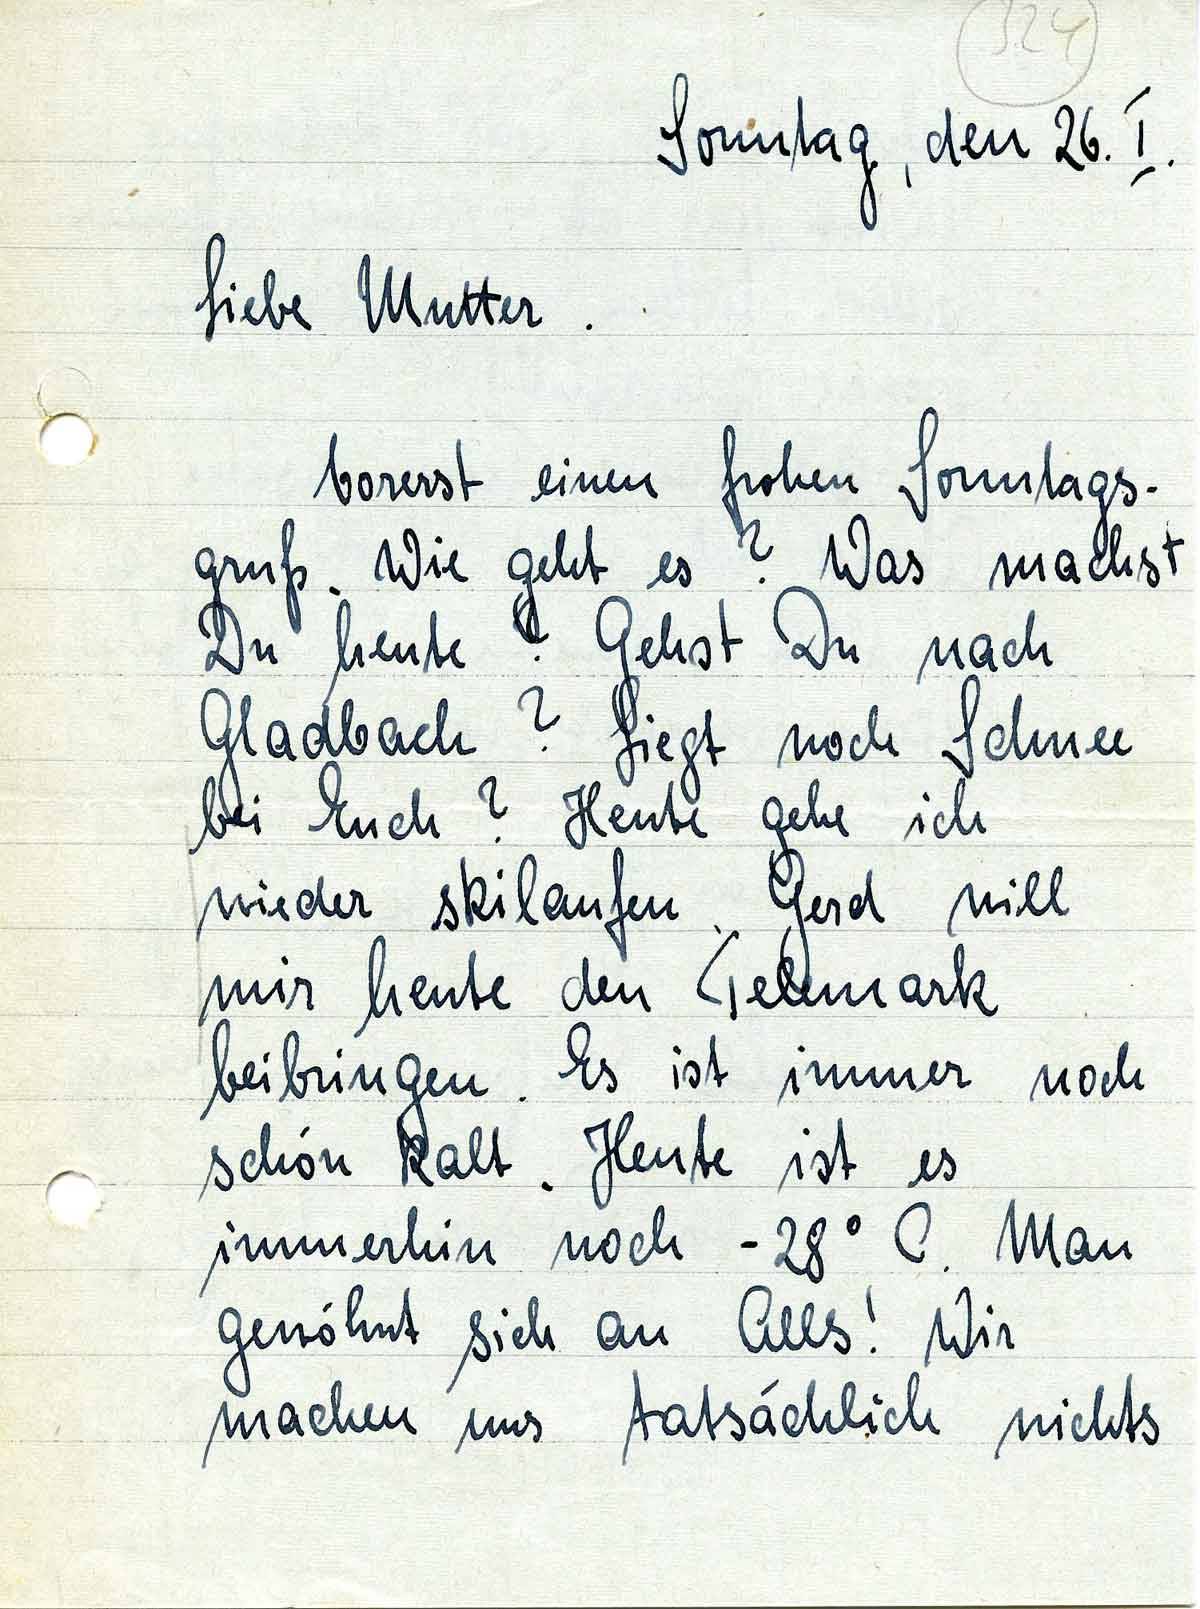 324
Sonntag, den 26. I.
Liebe Mutter.
Vorerst einen frohen Sonntags-
gruß. Wie geht es? Was machst
Du heute? Gehst Du nach
Gladbach? Liegt noch Schnee
bei Euch? Heute gehe ich
wieder skilaufen. Gerd will
mir heute den Telemark
beibringen. Es ist immer noch
schön kalt. Heute ist es
immerhin noch -28° C. Man
gewöhnt sich an Alles! Wir
machen uns tatsächlich nichts